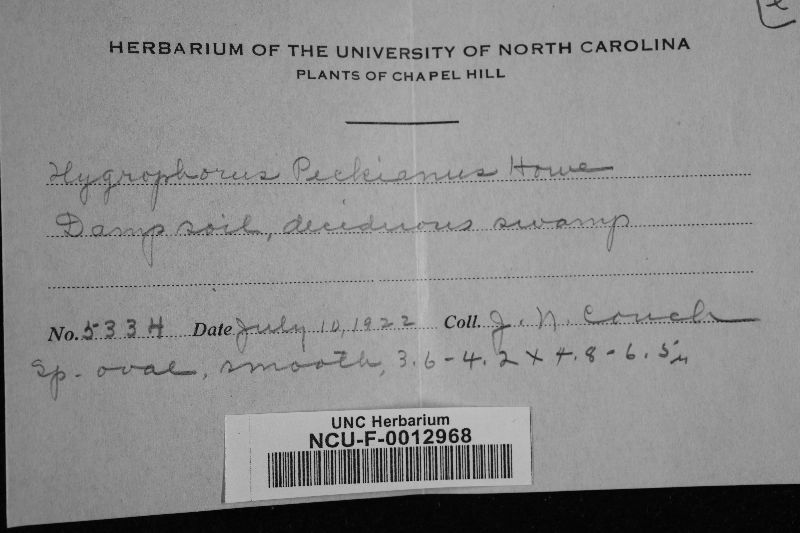 HERBARIUM OF THE UNIVERSITY OF NORTH CAROLINA
PLANTS OF CHAPEL HILL
Hygrophorus Peckianus Howe
Damp soil, deciduous swamp
No. 5334 Date July 10, 1922 Coll. J. N. Couch
Sp. oval, smooth, 3.6-4.2 x 4.8-6.5µ
UNC Herbarium
NCU-F-0012968